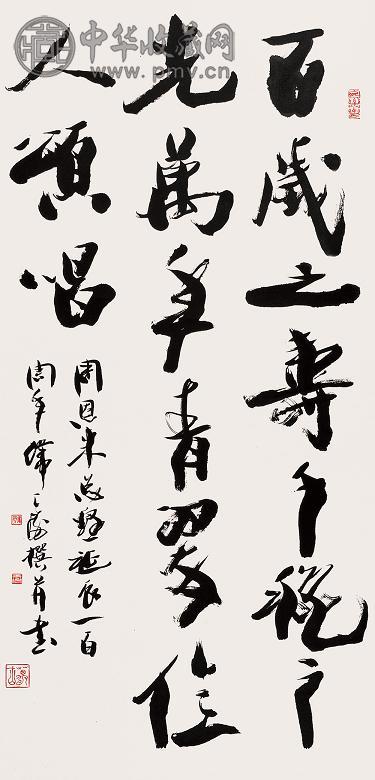 中华收藏网
www.pmv.cn
百歲之壽千秋之
光萬年青翠億
人頌唱
周恩来总理誕辰一百
周年撰并書